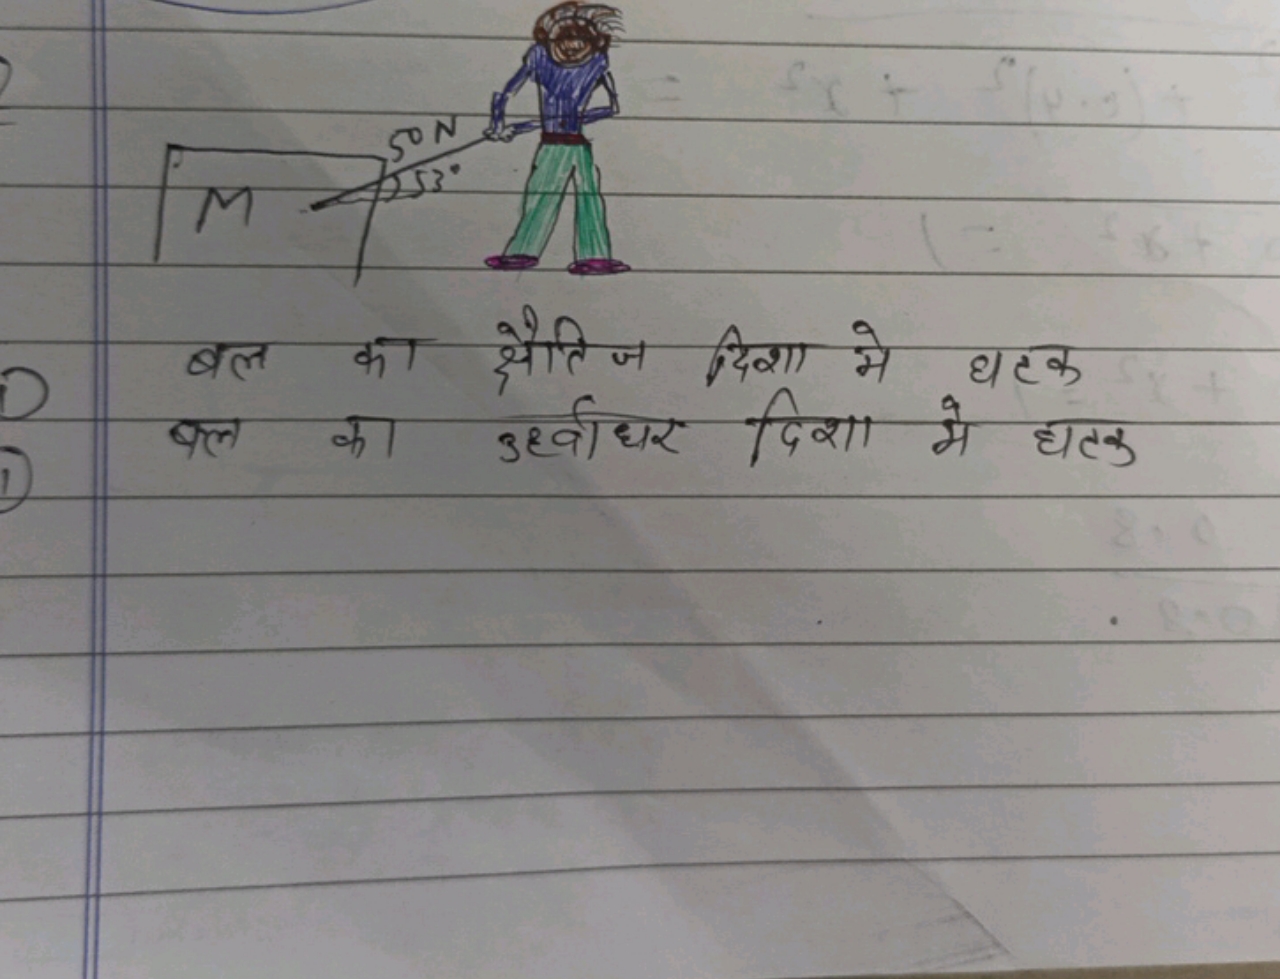 50 N
53°
M
बल का क्षैतिज दिशा मे घटक
बल का उर्ध्वाधर दिशा मे घटक